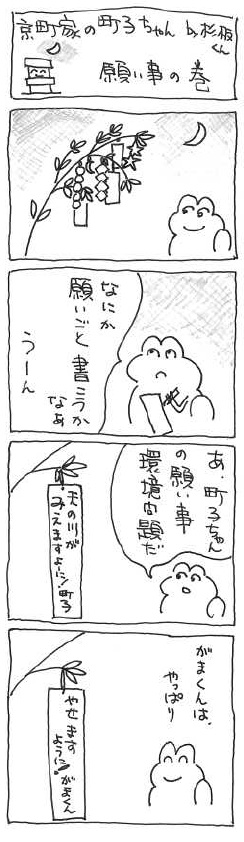 京町家の町子ちゃん by杉板くん
願い事の巻
なにか
願いごと書こうか
なぁ
うーん
あ、町子ちゃん
の願い事
環境問題だ
天の川が
みえますよーに! 町子
がまくんは、
やっぱり
やせます
ように! がまくん